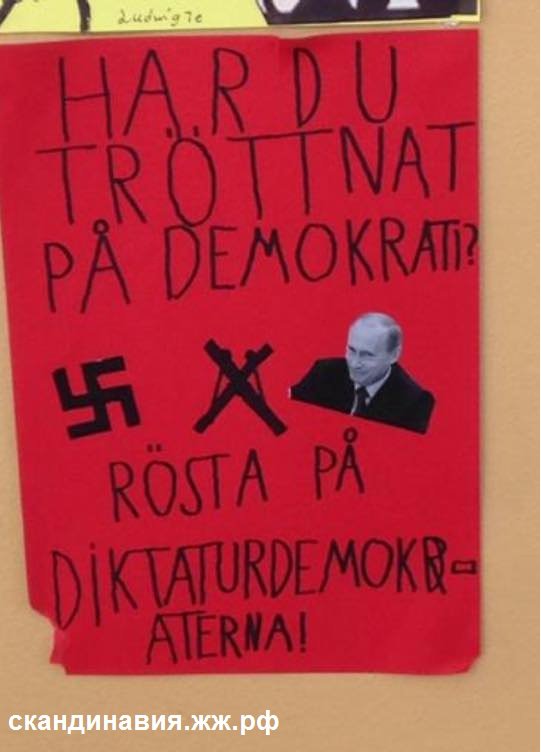 Ludwigre
HAR DU
TRÖTTNAT
PÅ DEMOKRATI?
RÖSTA PÅ
DIKTATURDEMOKR-
ATERNA!
скандинавия.жж.рф